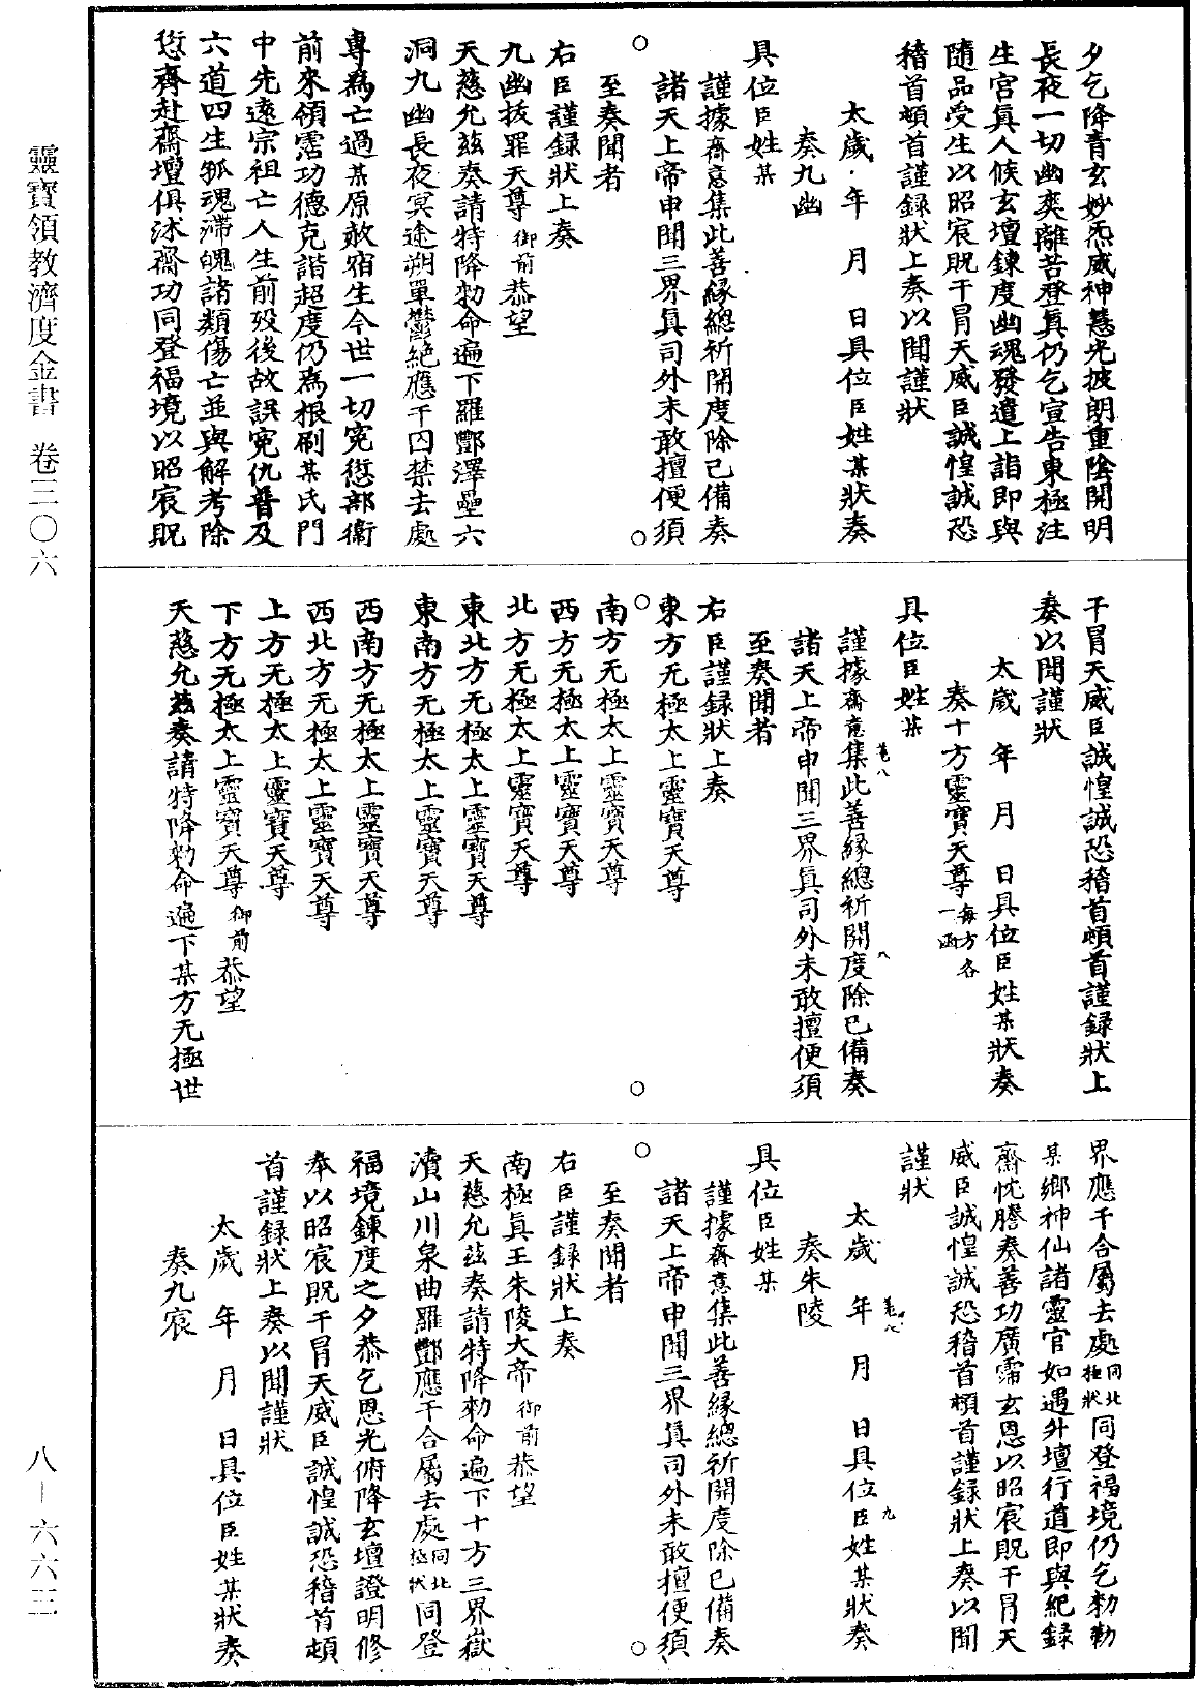 夕乞降青玄妙炁威神慧光披朗重陰開明
長夜一切幽爽離苦登眞仍乞宣告東極注
生宮眞人候玄壇鍊度幽魂發遣上詣即與
隨品受生以昭宸貺干冒天威臣誠惶誠恐
稽首頓首謹録狀上奏以聞謹狀
太歲 年 月 日具位臣姓某狀奏
奏九幽
具位臣姓某
謹據齋意集此善緣總祈開度除已備奏
諸天上帝申聞三界眞司外未敢擅便須
至奏聞者
右臣謹録狀上奏
九幽拔罪天尊御前恭望
天慈允兹奏請特降勑命遍下羅酆澤壘六
洞九幽長夜冥途朔單鬱絶應干囚禁去處
專爲亡過某原赦宿生今世一切寃愆部衛
前來領霑功德克諧超度仍爲根刷某氏門
中先遠宗祖亡人生前歿後故誤寃仇普及
六道四生孤魂滯魄諸類傷亡並與解考除
愆齊赴齋壇俱沐齋功同登福境以昭宸貺
干冒天威臣誠惶誠恐稽首頓首謹録狀上
奏以聞謹狀
太歲 年 月 日具位臣姓某狀奏
奏十方靈寳天尊每方各一函
具位臣姓某
謹據齋意集此善緣總祈開度除已備奏
諸天上帝申聞三界眞司外未敢擅便須
至奏聞者
右臣謹録狀上奏
東方无極太上靈寳天尊
南方无極太上靈寳天尊
西方无極太上靈寳天尊
北方无極太上靈寳天尊
東北方无極太上靈寳天尊
東南方无極太上靈寳天尊
西南方无極太上靈寳天尊
西北方无極太上靈寳天尊
上方无極太上靈寳天尊
下方无極太上靈寳天尊御前恭望
天慈允兹奏請特降勑命遍下某方无極世
界應干合屬去處同北極狀同登福境仍乞勑勒
某鄉神仙諸靈官如遇外壇行道即與紀録
齋忱謄奏善功廣霈玄恩以昭宸貺干冒天
威臣誠惶誠恐稽首頓首謹録狀上奏以聞
謹狀
太歲 年 月 日具位臣姓某狀奏
奏朱陵
具位臣姓某
謹據齋意集此善緣總祈開度除已備奏
諸天上帝申聞三界眞司外未敢擅便須
至奏聞者
右臣謹録狀上奏
南極眞王朱陵大帝御前恭望
天慈允兹奏請特降勑命遍下十方三界嶽
瀆山川泉曲羅酆應干合屬去處同北極狀同登
福境鍊度之夕恭乞恩光俯降玄壇證明修
奉以昭宸貺干冒天威臣誠惶誠恐稽首頓
首謹録狀上奏以聞謹狀
太歲 年 月 日具位臣姓某狀奏
奏九宸
靈寶領教濟度金書 卷三〇六
八—六六三